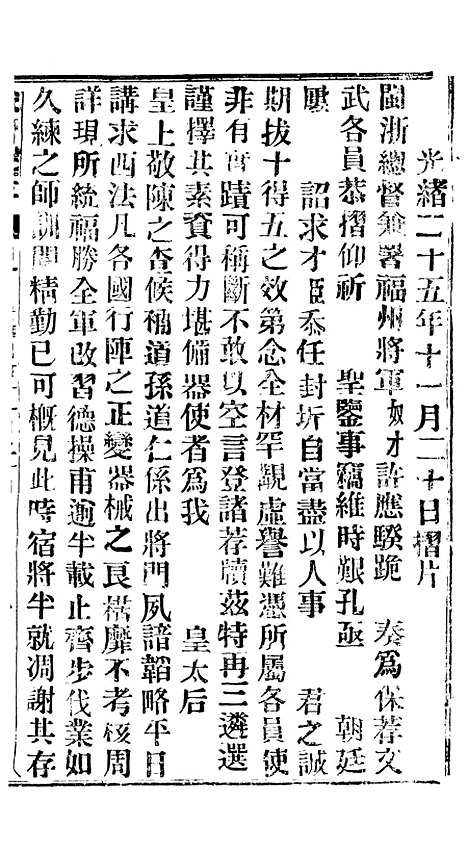 光緒二十五年十一月二十日摺片
閩浙總督兼署福州將軍奴才許應騤跪 奏為保荐文
武各員恭摺仰祈 聖鑒事竊維時艱孔亟 朝廷
屢 詔求才臣忝任封圻自當盡以人事 君之誠
期拔十得五之效第念全材罕覯虛譽難憑所屬各員使
非有實蹟可稱斷不敢以空言登諸荐牘茲特再三遴選
謹擇其素資得力堪備器使者為我 皇太后
皇上敬陳之查候補道孫道仁係出將門夙諳韜略平日
講求西法凡各國行陣之正變器械之良楛靡不考核周
詳現所統福勝全軍改習德操甫逾半載止齊步伐業如
久練之師訓練精勤已可概見此時宿將半就凋謝其存